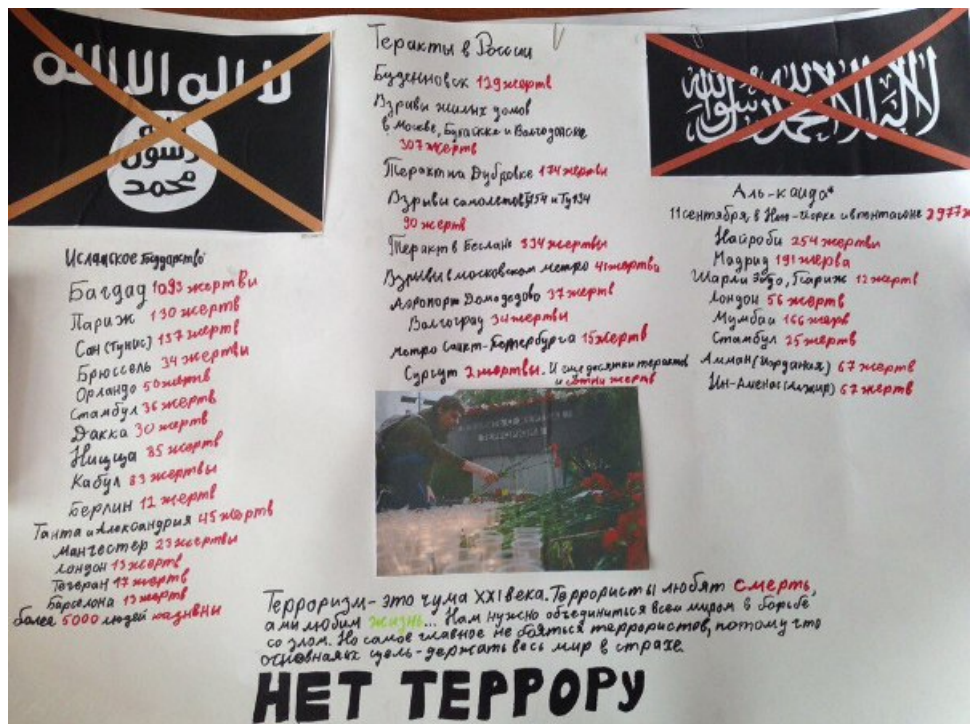 لا اله الا الله
الله
رسول
محمد
Исламское государство
Багдад 1093 жертвы
Париж 130 жертв
Сан (Тунис) 137 жертв
Брюссель 34 жертвы
Орландо 50 жертв
Стамбул 36 жертв
Дакка 30 жертв
Ницца 85 жертв
Кабул 83 жертвы
Берлин 12 жертв
Танта и Александрия 45 жертв
Манчестер 23 жертвы
Лондон 13 жертв
Тегеран 17 жертв
Барселона 13 жертв
более 5000 людей казнены
Теракты в России
Буденновск 129 жертв
Взрывы жилых домов
в Москве, Буйнакске и Волгодонске
307 жертв
Теракт на Дубровке 174 жертвы
Взрывы самолетов Ту154 и Ту134
90 жертв
Теракт в Беслане 334 жертвы
Взрывы в московском метро 41 жертва
Аэропорт Домодедово 37 жертв
Волгоград 34 жертвы
метро Санкт-Петербурга 15 жертв
Сургут 2 жертвы. И еще десятки терактов
и сотни жертв
لا إله إلا الله محمد رسول الله
Аль-каида*
11 сентября, в Нью-Йорке и пентагоне 2977
Найроби 254 жертвы
Мадрид 191 жерва
Шарли Эбдо, Париж 12 жертв
Лондон 56 жертв
Мумбаи 166 жерв
Стамбул 25 жертв
Амман (Иордания) 67 жертв
Ин-Аменас (Алжир) 67 жертв
Терроризм- это чума XXI века. Террористы любят смерть,
а мы любим жизнь... Нам нужно объединиться всем миром в борьбе
со злом. Но самое главное не бояться террористов, потому что
основная их цель- держать весь мир в страхе.
НЕТ ТЕРРОРУ